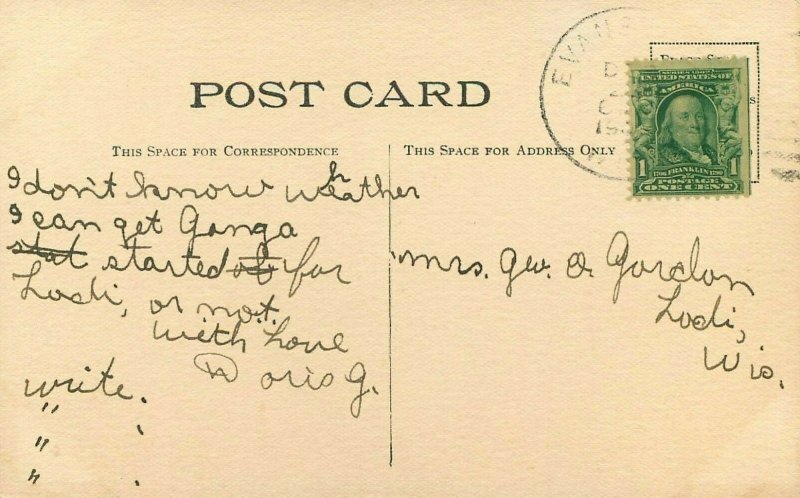 POST CARD
THIS SPACE FOR CORRESPONDENCE
THIS SPACE FOR ADDRESS ONLY
EVAN
SERIES 1902
UNITED STATES OF
AMERICA
1706 FRANKLIN 1790
1 1
POSTAGE
ONE CENT
I don't know weather
I can get Ganga
stat started of for
Lodi, or not.
With Love
Doris G.
write.
" .
" 
" .
Mrs. Geo. O. Gordon
Lodi,
Wis.